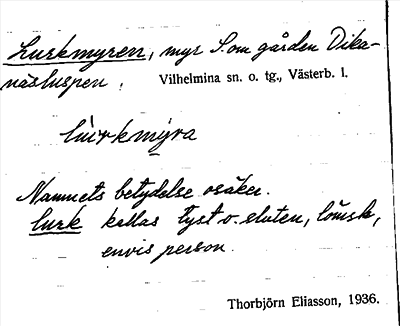 Lurkmyren, myr S. om gården Dika-
näsluspen. Vilhelmina sn. o. tg., Västerb. l.
lùrkmy̱ra
Namnets betydelse osäker.
lurk kallas tyst o. sluten, lömsk,
envis person.
Thorbjörn Eliasson, 1936.